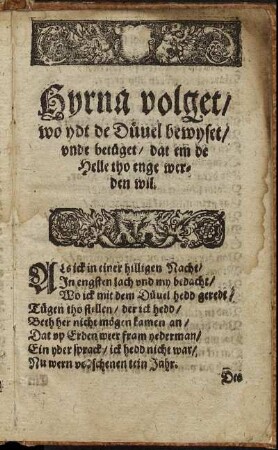 Hyrna volget/
wo ydt de Düuel bewyset/
vnde betüget/ dat em de
Helle tho enge wer-
den wil.
Als ick in einer hilligen Nacht/
In engsten lach vnd my bedacht/
Wo ick mit dem Düuel hedd geredt/
Tügen tho stellen/ der ick hedd/
Beth her nicht mögen kamen an/
Dat vp Erden weer fram yederman/
Ein yder sprack/ ick hedd nicht war/
Nu wern vorschenen tein Jahr.
Des